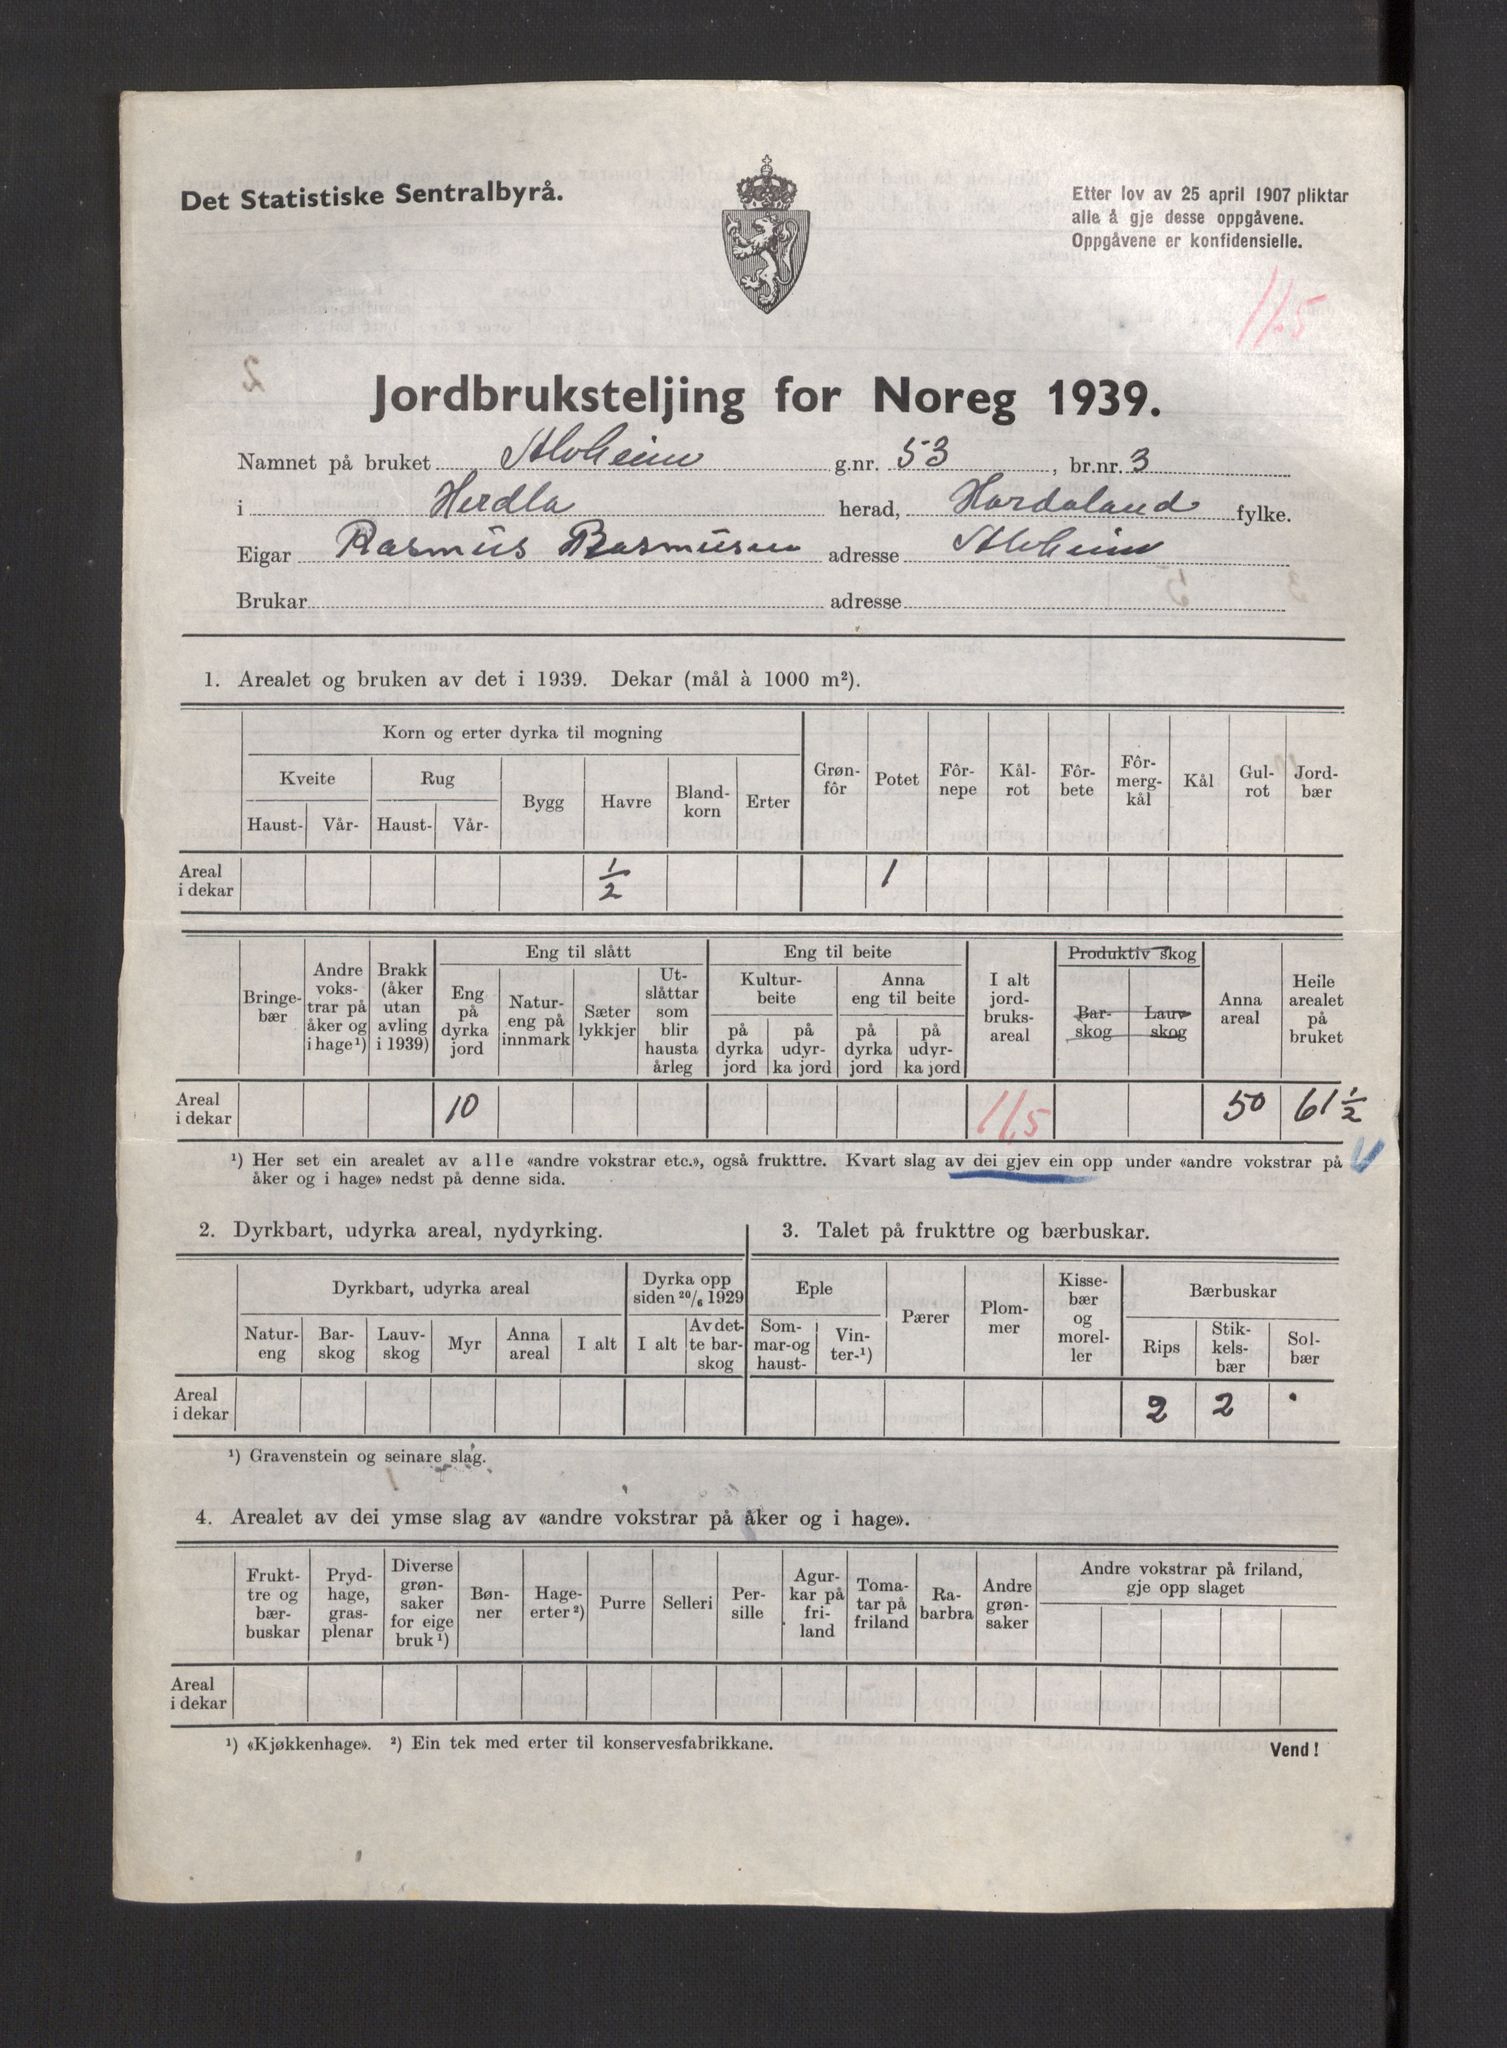 Det Statistiske Sentralbyrå.
Etter lov av 25 april 1907 pliktar
alle å gje desse oppgåvene.
Oppgåvene er konfidensielle.
11.5
Jordbruksteljing for Noreg 1939.
Namnet på bruket Alvheim g.nr. 53, br.nr. 3
i Herdla herad, Hordaland fylke.
Eigar Rasmus Rasmusen adresse Alvheim
Brukar adresse
1. Arealet og bruken av det i 1939. Dekar (mål à 1000 m²).
Korn og erter dyrka til mogning
Kveite Rug Bygg Havre Blandkorn Erter Grønfôr Potet Fôrnepe Kålrot Fôrbete Fôrmergkål Kål Gulrot Jordbær
Haust- Vår- Haust- Vår-
Areal i dekar 1/2 1
Bringebær
Andre vokstrar på åker og i hage¹)
Brakk (åker utan avling i 1939)
Eng til slått
Eng på dyrka jord
Natureng på innmark
Sæter lykkjer
Utslåttar som blir hausta årleg
Eng til beite
Kulturbeite
på dyrka jord
på udyrka jord
Anna eng til beite
på dyrka jord
på udyrka jord
I alt jordbruksareal
Produktiv skog
Barskog
Lauvskog
Anna areal
Heile arealet på bruket
Areal i dekar 10 11,5 50 61 1/2
¹) Her set ein arealet av alle «andre vokstrar etc.», også frukttre. Kvart slag av dei gjev ein opp under «andre vokstrar på
åker og i hage» nedst på denne sida.
2. Dyrkbart, udyrka areal, nydyrking.
Dyrkbart, udyrka areal
Dyrka opp siden 20/6 1929
Natureng Barskog Lauvskog Myr Anna areal I alt I alt Av dette barskog
Areal i dekar
¹) Gravenstein og seinare slag.
3. Talet på frukttre og bærbuskar.
Eple
Sommar- og haust- Vinter-¹)
Pærer
Plommer
Kissebær og moreller
Bærbuskar
Rips Stikkelsbær Solbær
2 2
4. Arealet av dei ymse slag av «andre vokstrar på åker og i hage».
Frukttre og bærbuskar
Prydhage, grasplenar
Diverse grønsaker for eige bruk¹)
Bønner
Hageerter²)
Purre
Selleri
Persille
Agurkar på friland
Tomatar på friland
Rabarbra
Andre grønsaker
Andre vokstrar på friland, gje opp slaget
Areal i dekar
¹) «Kjøkkenhage». ²) Ein tek med erter til konservesfabrikkane.
Vend!